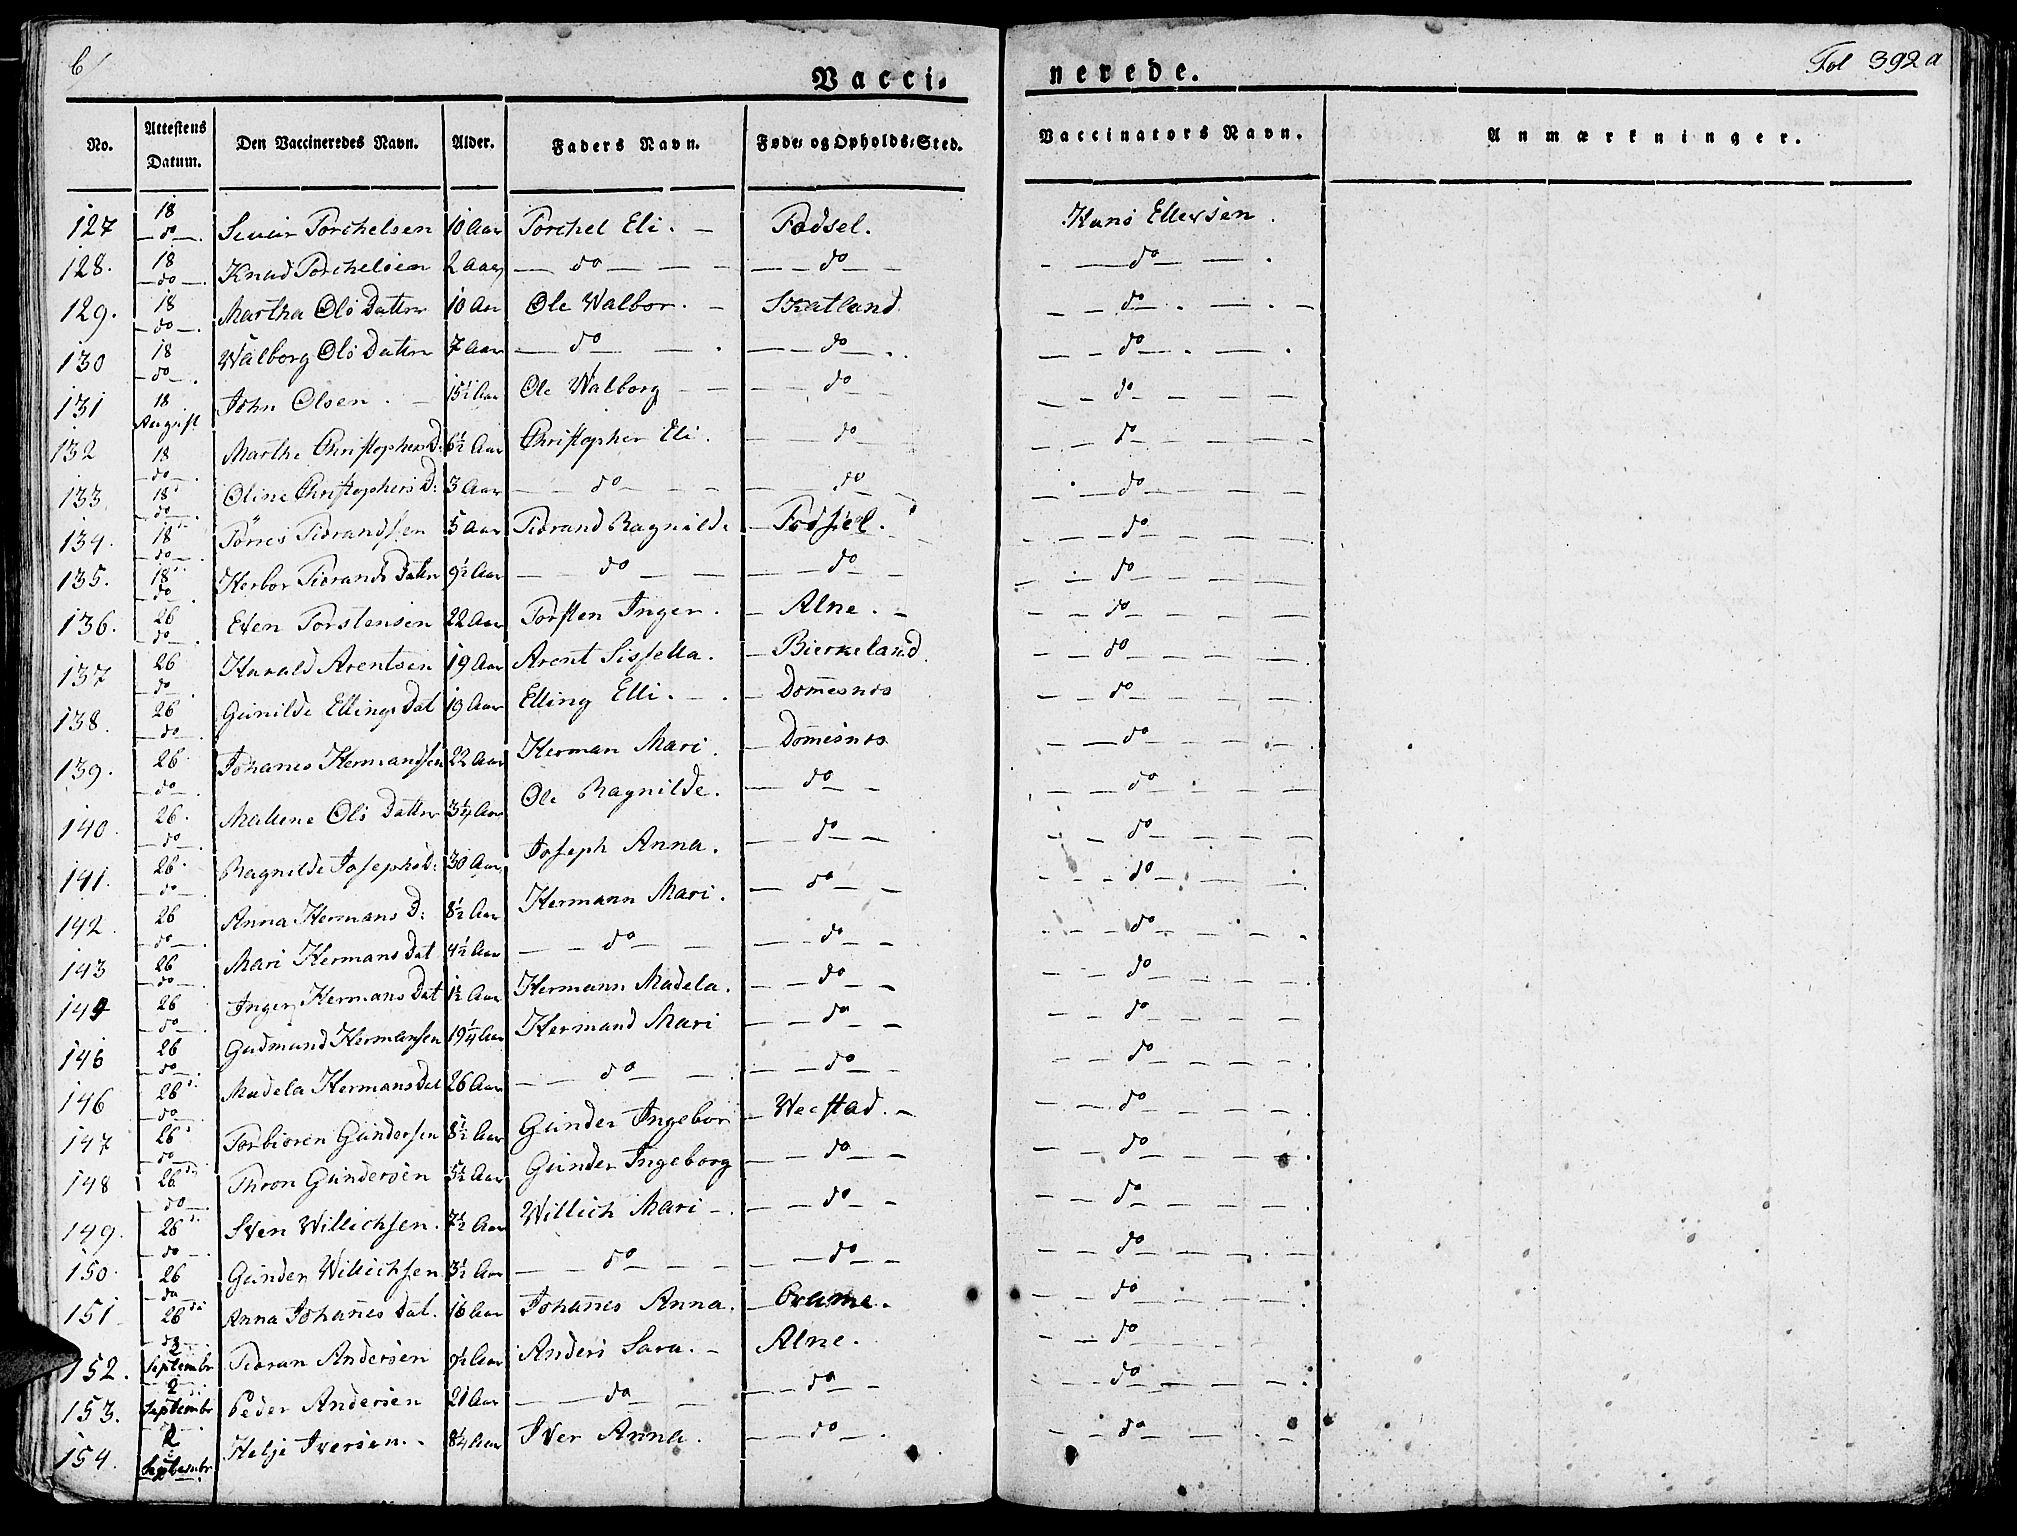 6/ Vacci- nerede. Fol 392a
No. Attestens Datum. Den Vaccineredes Navn. Alder. Faders Navn. Føde- og Opholds-Sted. Vaccinators Navn. Anmærkninger.
127 18 do Siver Torchelsen 10 Aar Torchel Eli. Fodsel. Hans Ellersen
128. 18 do Knud Torchelsen 2 Aar do do do
129. 18 do Martha Ols Datter 10 Aar Ole Walbor. Skatland do
130 18 do Walborg Ols Datter 7 Aar do do do
131 18 August John Olsen. 15½ Aar Ole Walborg do do
132 18 do Marthe Christophers D: 6½ Aar Christopher Eli. do do
133 18 do Oline Christophers D: 3 Aar do do do
134. 18 do Törres Tidrandsen 5 Aar Tidrand Ragnilde Fodsel. do
135. 18 do Herbor Tidrands Datter 9½ Aar do do do
136. 26 do Even Torstensen 22 Aar Torsten Inger. Alne. do
137 26 do Harald Arentsen 19 Aar Arent Sissella. Bierkeland do
138. 26 do Gunilde Ellings Dat 19 Aar Elling Elli. Domesnes do
139. 26 do Johanes Hermandsen 22 Aar Herman Mari. Domesnes do
140. 26. do Mallene Ols Datter 3¼ Aar Ole Ragnilde. do do
141. 26. do Ragnilde Josephs D: 30 Aar Joseph Anna. do do
142. 26 do Anna Hermans D: 8½ Aar Hermann Mari. do do
143 26 do Mari Hermans Dat 4½ Aar do do do
144 26 do Inger Hermans Dat 1½ Aar Hermann Madela. do do
146 26 do Gudmund Hermansen 19¼ Aar Hermand Mari do do
146 26 do Madela Hermans Dat 26 Aar do do do
147 26 do Torbiören Gundersen 8½ Aar Gunder Ingebor Weestad. do
148 26 do Thron Gundersen 5½ Aar Gunder Ingeborg do do
149. 26 do Sven Willichsen. 7½ Aar Willich Mari do do
150. 26 do Gunder Willichsen 3½ Aar do do do
151. 26 do Anna Johanes Dat. 16 Aar Johanes Anna. Orame. do
152. 2 Septembr Tidran Andersen 9½ Aar Anders Sara. Alne. do
153. 2 Septembr Peder Andersen 21 Aar do do do
154. 2 Septembr Helje Iversen. 8¼ Aar Iver Anna. do do